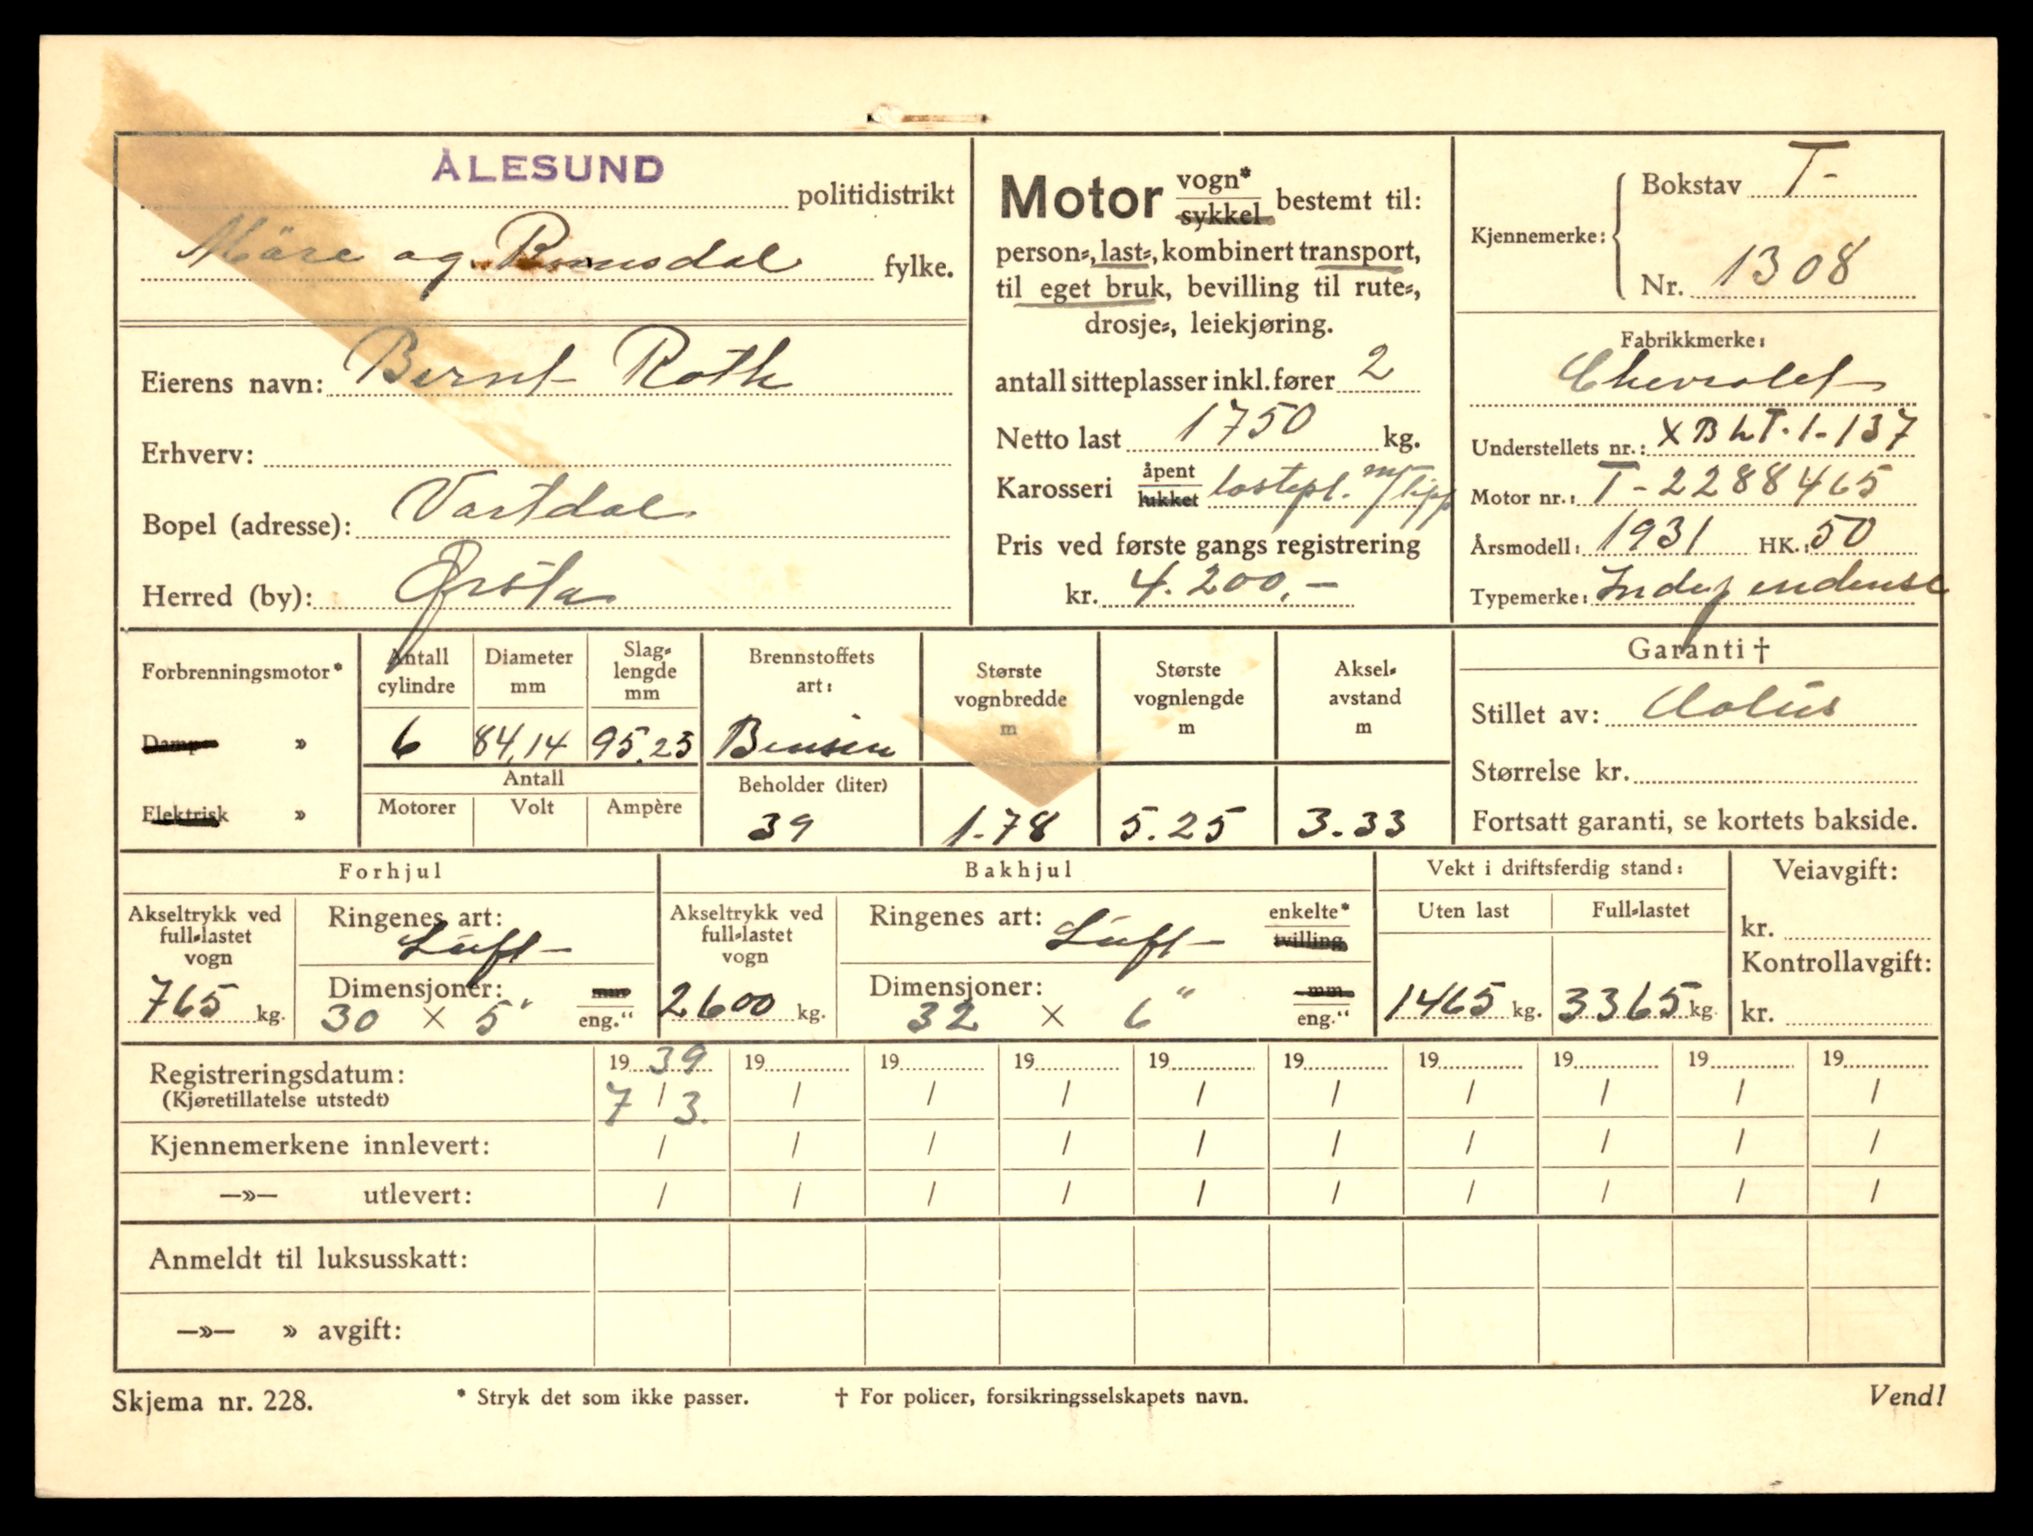 ÅLESUND politidistrikt
Möre og Romsdal fylke.
Eierens navn: Bernt Roth
Erhverv:
Bopel (adresse): Vartdal
Herred (by): Ørsta
Motor vogn* sykkel bestemt til:
person-, last-, kombinert transport,
til eget bruk, bevilling til rute-,
drosje-, leiekjøring.
antall sitteplasser inkl. fører 2
Netto last 1750 kg.
Karosseri åpent lukket lastepl. m/tipp
Pris ved første gangs registrering
kr. 4.200,-
Kjennemerke: Bokstav T-
Nr. 1308
Fabrikkmerke:
Chevrolet
Understellets nr.: XBLT-1-137
Motor nr.: T-2288465
Årsmodell: 1931 HK.: 50
Typemerke: Independense
Garanti †
Stillet av: Aolus
Størrelse kr.
Fortsatt garanti, se kortets bakside.
Forbrenningsmotor*
Damp- »
Elektrisk »
Antall cylindre 6
Diameter mm 84,14
Slag-lengde mm 95.25
Antall
Motorer Volt Ampère
Brennstoffets art: Bensin
Beholder (liter) 39
Største vognbredde m 1.78
Største vognlengde m 5.25
Aksel-avstand m 3.33
Forhjul
Akseltrykk ved full-lastet vogn 765 kg.
Ringenes art: Luft
Dimensjoner: 30 × 5" mm eng."
Bakhjul
Akseltrykk ved full-lastet vogn 2600 kg.
Ringenes art: Luft enkelte* tvilling
Dimensjoner: 32 × 6" mm eng."
Vekt i driftsferdig stand:
Uten last 1465 kg.
Full-lastet 3365 kg.
Veiavgift:
kr.
Kontrollavgift:
kr.
Registreringsdatum: 19 39 19 19 19 19 19 19 19 19 19
(Kjøretillatelse utstedt) 7 / 3. / / / / / / / / /
Kjennemerkene innlevert: / / / / / / / / / /
—»— utlevert: / / / / / / / / / /
Anmeldt til luksusskatt:
—»— » avgift:
Skjema nr. 228. * Stryk det som ikke passer. † For policer, forsikringsselskapets navn. Vend!